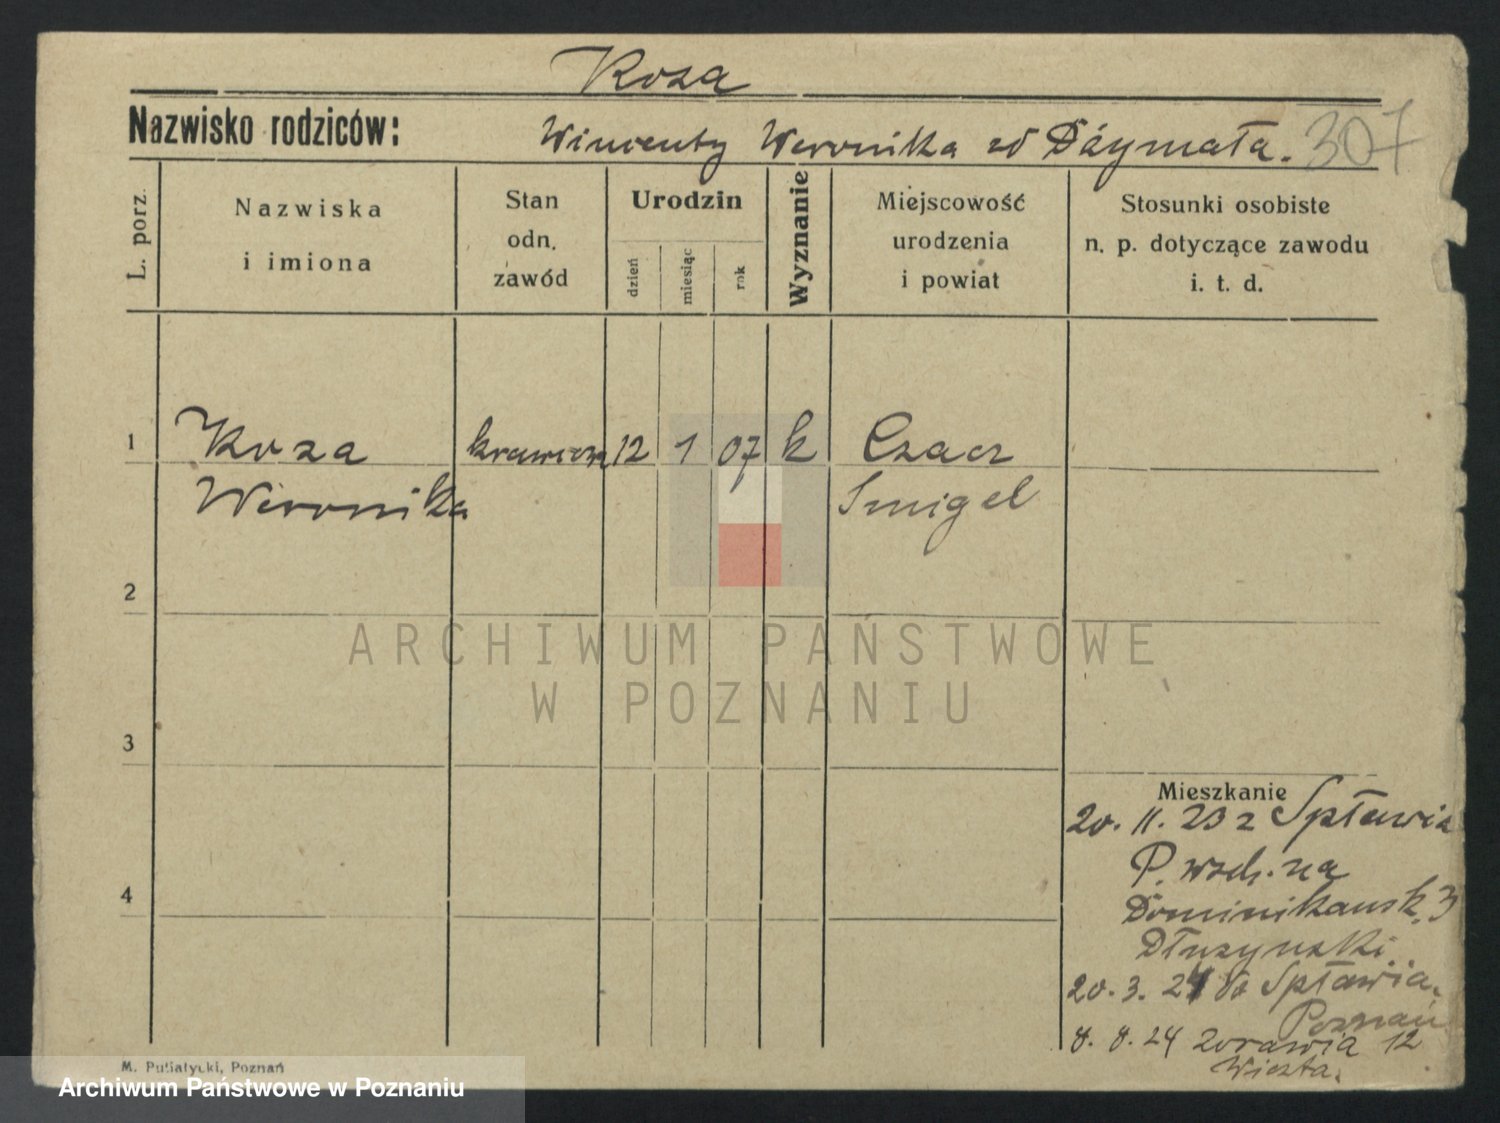 Koza
Nazwisko rodziców: Wincenty Weronika zd Dáymała. 307
L. porz.
Nazwiska
i imiona
Stan
odn.
zawód
Urodzin
dzień
miesiąc
rok
Wyznanie
Miejscowość
urodzenia
i powiat
Stosunki osobiste
n. p. dotyczące zawodu
i. t. d.
1 Koza 12 1 07 k Czacz
Weronika Smigel
2
3
4
ARCHIWUM PAŃSTWOWE
W POZNANIU
Mieszkanie
20. 11. 23 z Spławia
P. wsch. na
Dominikańsk. 3
Dłuzynski
20. 3. 24 do Spławia.
Poznań
8. 8. 24 Zorawia 12
M. Putiatycki, Poznań
Archiwum Państwowe w Poznaniu